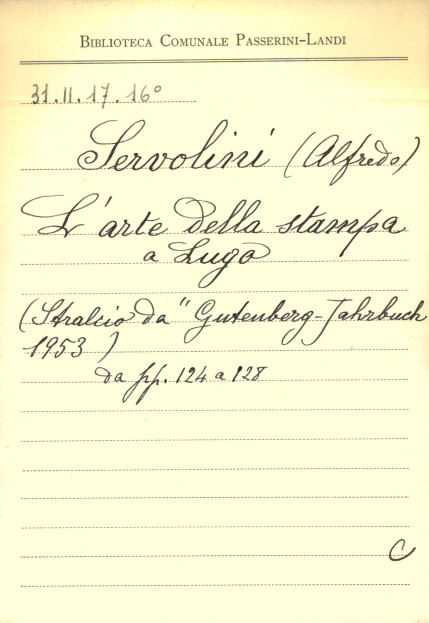 BIBLIOTECA COMUNALE PASSERINI-LANDI
31.II.17.16°
Servolini (Alfredo)
L'arte della stampa
a Lugo
(Stralcio da "Gutenberg-Jahrbuch
1953 )
da pp. 124 a 128
C